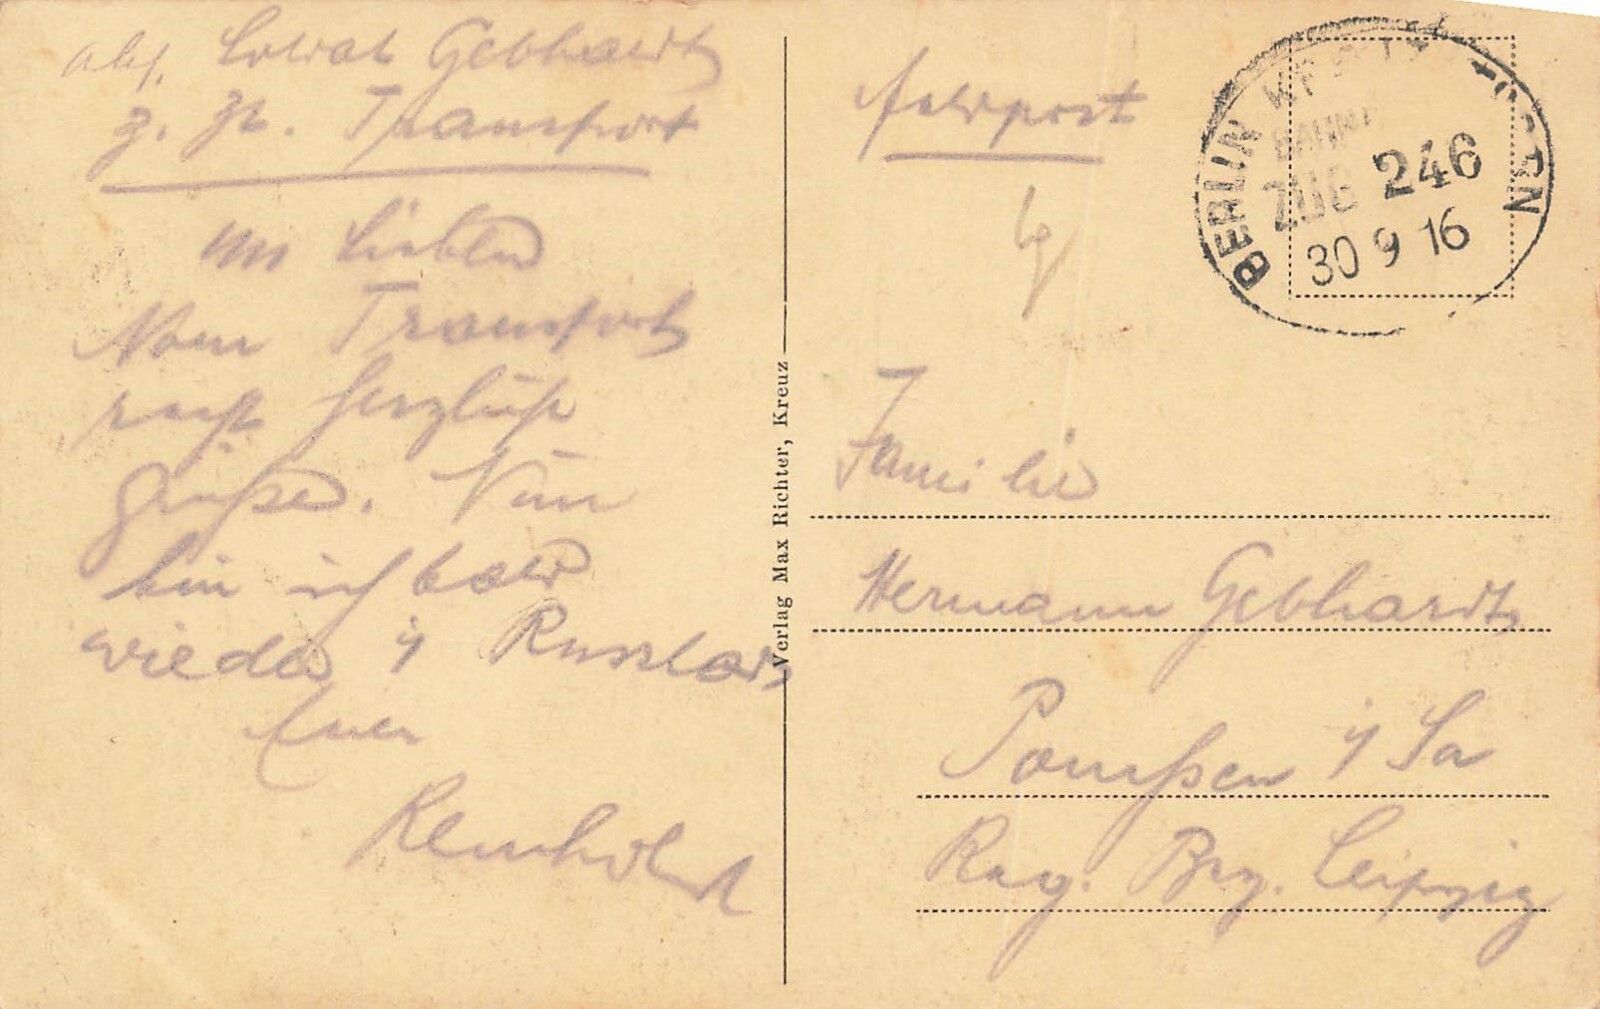 Abs. Soldat Gebhardt
z. Zt. Transport
M Lieben
Vom Transport
recht herzliche
Grüße. Nun
bin ich bald
wieder i/ Russland
Euer
Reinhold
Verlag Max Richter, Kreuz
Feldpost
BERLIN
BAHNP
ZUG 246
30 9 16
Familie
Hermann Gebhardt
Pomßen i/ Sa
Reg. Bez. Leipzig